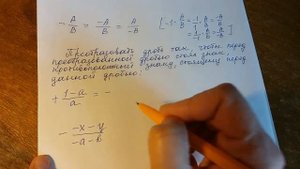 - A/B = -A/B = A/-B [-1·A/B = 1/-1·A/B = A/-B
= -1/1·A/B = -A/B]
Преобразовать дробь так, чтобы перед
преобразованной дробью стоял знак,
противоположный знаку, стоящему перед
данной дробью:
+ 1-a/a = -
- -x-y/-a-b